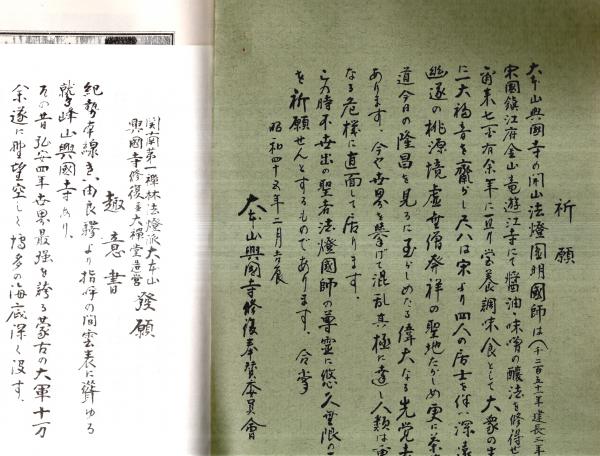 祈願
大本山興國寺の開山法燈圓明國師は(千二百五十一年建長三年
宋國鎮江府金山竜遊江寺にて醤油・味噌の醸法を修得せ
爾来七百有余年に亘り栄養調味食として大衆の生
に一大福音を齎がし尺八は宋より四人の居士を伴い深遠
幽邃の桃源境虚無僧発祥の聖地たらしめ実に茶
道今日の隆昌を見るに至らしめたる偉大なる先覚者
あります。今や世界を挙げて混乱其極に達し人類は重
なる危様に直面して居ります。
この時不世出の聖者法燈國師の尊霊に悠久無限の
を祈願せんとするものであります。合掌
昭和四十五年二月吉辰
大本山興國寺修復奉賛委員會
関南第一禅林法燈派大本山
興國寺修復並大禅堂造営
發願
趣意書
紀勢本線き、由良驛より指呼の間雲表に聳ゆる
鷲峰山興國寺あり。
その昔弘安四年世界最強を誇る蒙古の大軍十万
余遂に野望空しく博多の海底深く没す、